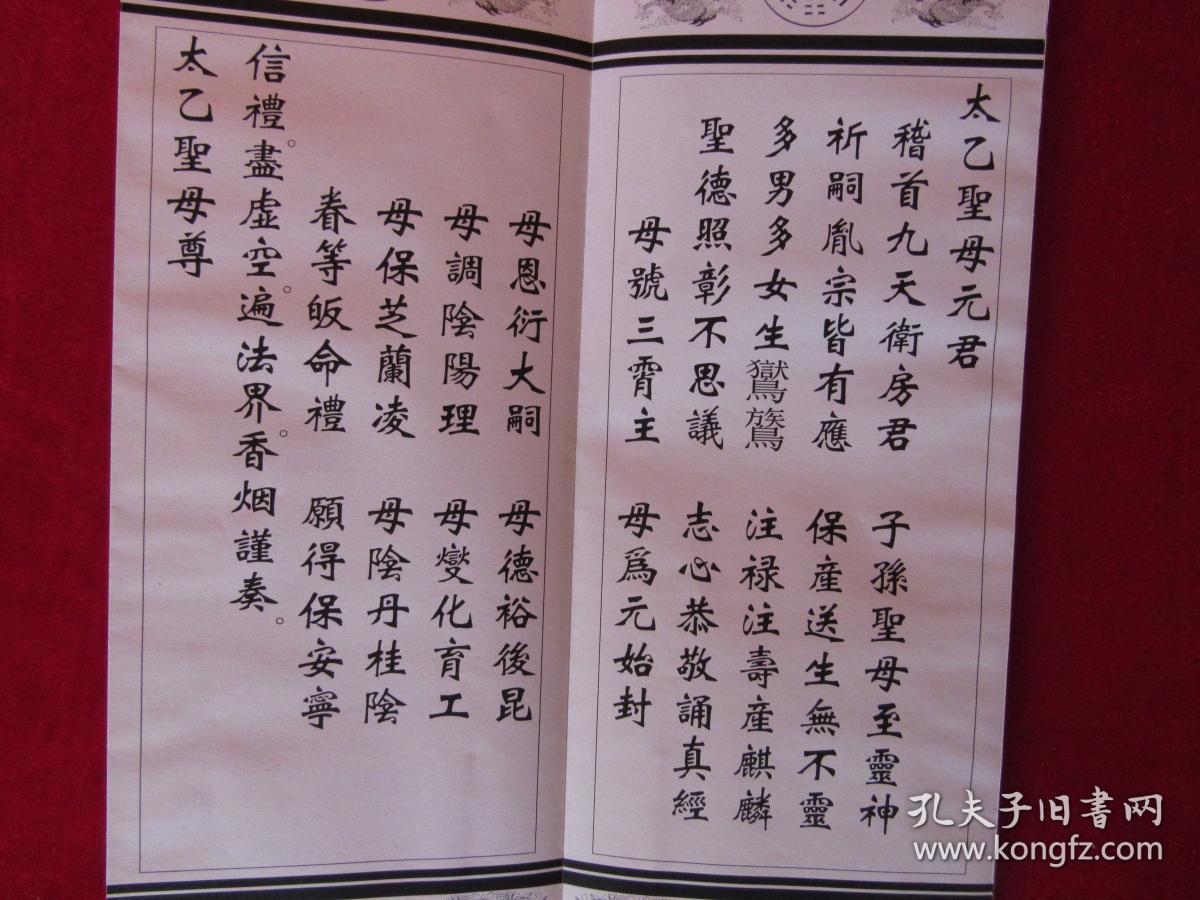 太乙聖母元君
稽首九天衛房君 子孫聖母至靈神
祈嗣胤宗皆有應 保産送生無不靈
多男多女生鸑鷟 注禄注壽産麒麟
聖德照彰不思議 志心恭敬誦真經
母號三霄主 母爲元始封
母恩衍大嗣 母德裕後昆
母調陰陽理 母燮化育工
母保芝蘭凌 母陰丹桂陰
眷等皈命禮 願得保安寧
信禮。盡虚空。遍法界。香烟謹奏。
太乙聖母尊
孔夫子旧書网
www.kongfz.com